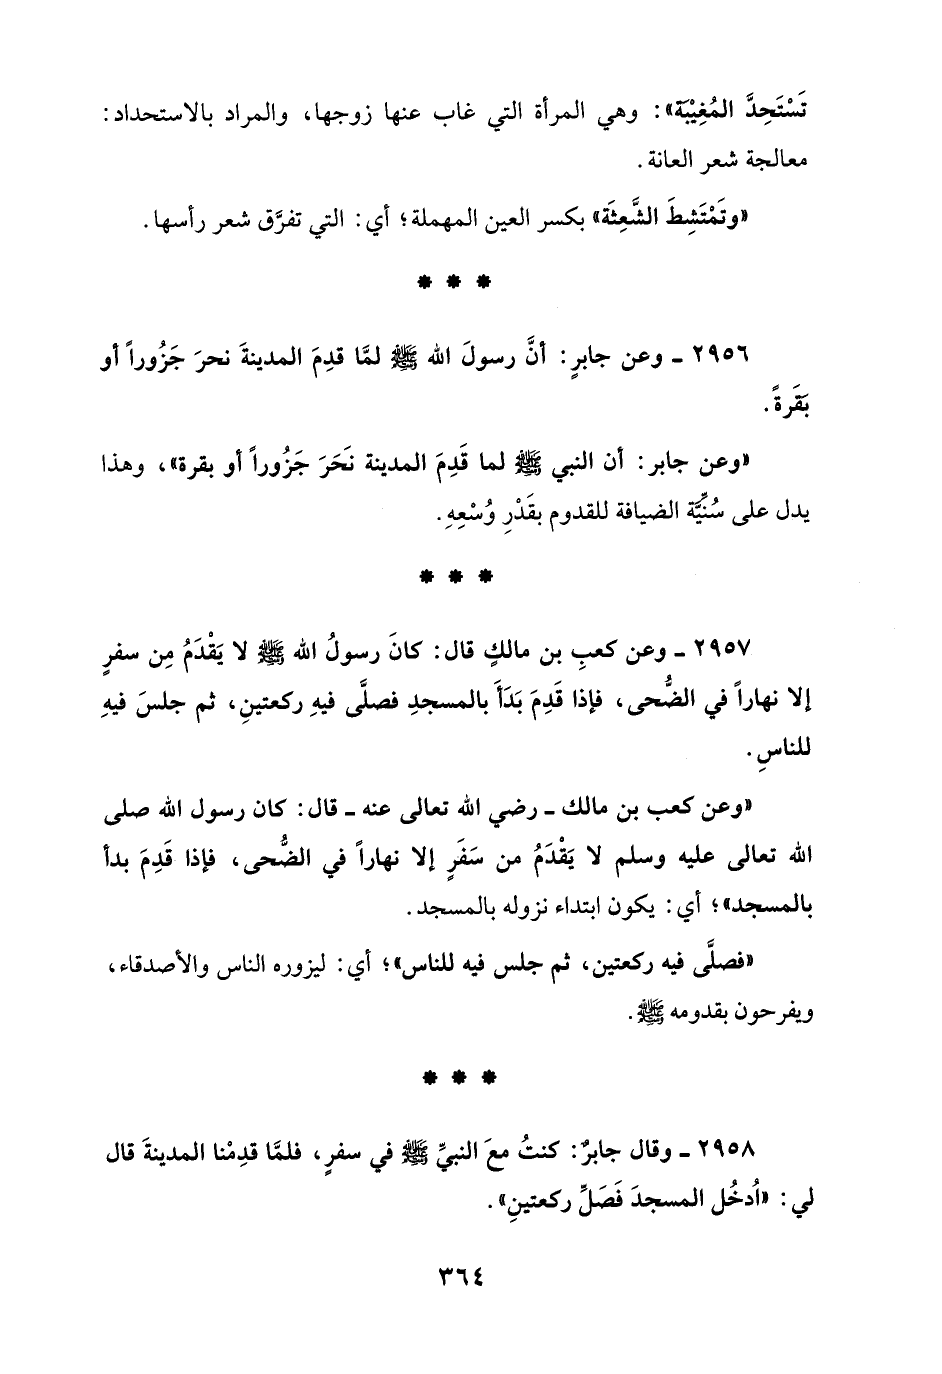 تَسْتَحِدَّ المُغِيْبَة»: وهي المرأة التي غاب عنها زوجها، والمراد بالاستحداد:
معالجة شعر العانة.
«وتَمْتَشِطَ الشَّعِثَة» بكسر العين المهملة؛ أي: التي تفرَّق شعر رأسها.
* * *
٢٩٥٦ ـ وعن جابرٍ: أنَّ رسولَ الله ﷺ لمَّا قدِمَ المدينةَ نحرَ جَزُوراً أو
بَقَرةً.
«وعن جابر: أن النبي ﷺ لما قَدِمَ المدينة نَحَرَ جَزُوراً أو بقرة»، وهذا
يدل على سُنِّيَّة الضيافة للقدوم بقَدْرِ وُسْعِهِ.
* * *
٢٩٥٧ ـ وعن كعبِ بن مالكٍ قال: كانَ رسولُ الله ﷺ لا يَقْدَمُ مِن سفرٍ
إلا نهاراً في الضُّحى، فإذا قَدِمَ بَدَأَ بالمسجدِ فصلَّى فيهِ ركعتينِ، ثم جلسَ فيهِ
للناسِ.
«وعن كعب بن مالك ـ رضي الله تعالى عنه ـ قال: كان رسول الله صلى
الله تعالى عليه وسلم لا يَقْدَمُ من سَفَرٍ إلا نهاراً في الضُّحى، فإذا قَدِمَ بدأ
بالمسجد»؛ أي: يكون ابتداء نزوله بالمسجد.
«فصلَّى فيه ركعتين، ثم جلس فيه للناس»؛ أي: ليزوره الناس والأصدقاء،
ويفرحون بقدومه ﷺ.
* * *
٢٩٥٨ ـ وقال جابرٌ: كنتُ معَ النبيِّ ﷺ في سفرٍ، فلمَّا قدِمْنا المدينةَ قال
لي: «اُدخُل المسجدَ فَصَلِّ ركعتينِ».
٣٦٤